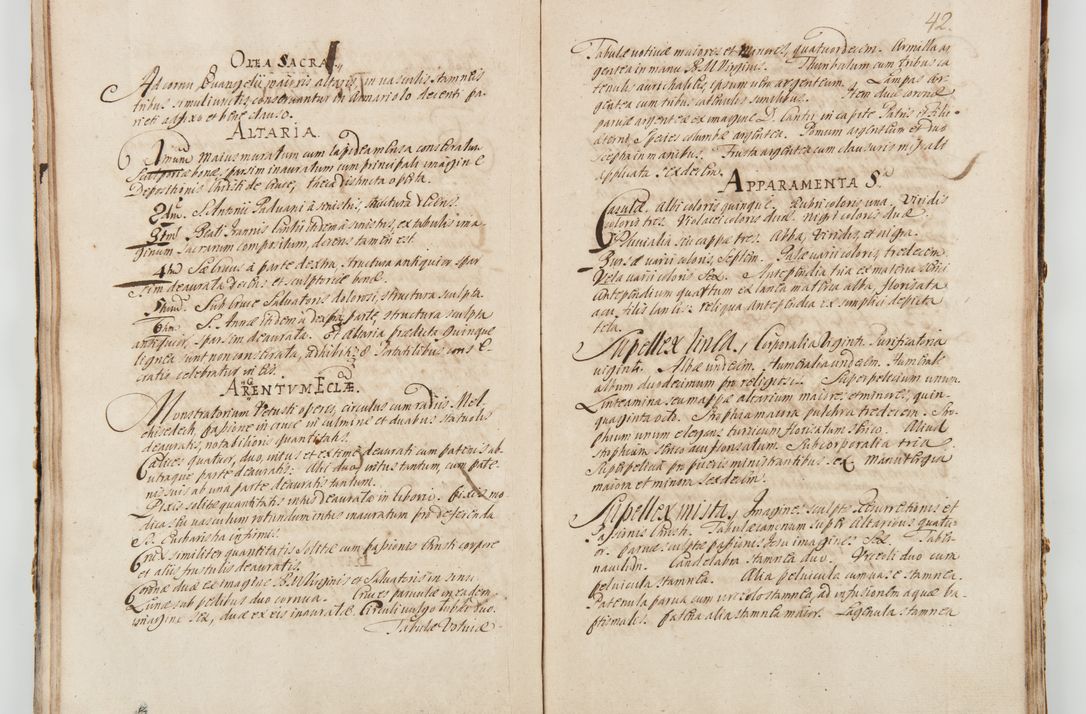 OLEA SACRA.
Ad cornu Evangelii maioris altaris, in vasculis stamneis
tribus simul iunctis conservantur in Armariolo decenti pa-
rieti adfixo et bene clauso.
ALTARIA.
Imum Maius muratum cum lapidea mensa consecratum
structurae bonae, partim inauratum cum principali imagine
Depositionis Christi de Cruce, theca distincta optita.
2dum. S. Antonii Paduani à sinistris, structura decens.
3tium Beati Joannis Cantii itidem à sinistris, ex tabulis ima-
ginum Sacrarum compositum, decens tamen est.
4tum Sae Crucis à parte dextra, structura antiquior spar-
sim deaurata decens et sculpturae bonae.
5tum Sub cruce Salvatoris dolorosi, structura sculpta.
6tum S. Annae itidem à dextra parte, structura sculpta
antiquior, sparsim deaurata. Et altaria praedicta quinque
lignea sunt non consecrata, adhibitis Portatilibus conse-
cratis celebratur in eis.
ARGENTUM ECCLAE.
Monstratorium Vetusti operis, circulus cum radiis Mel-
chisedech, passione in cruce in culmine et duabus statulis
deauratis, notabilioris quantitatis.
Calices quatuor, duo, intus et extime deaurati cum patenis ab
utraque parte deauratis: Alii duo intus tantum, cum pate-
nis suis ab una parte deauratis tantum.
Pixis solitae quantitatis intus deaurato in Ciborio. Pixis mo-
dica seu vasculum rotundum intus inauratum pro deferenda
SS. Eucharistia infirmis.
Crux similiter quantitatis solitae cum passionis Christi corpore
et aliis frustulis deauratis.
Coronae duae ex imagine B. M. Virginis et Salvatoris in sinu,
Lunae sub pedibus duo cornua. Cruces parvulae in eadem
imagine sex, duae ex eis inauratae. Circuli vulgo lubki duo.
Tabulae Votivae
42.
Tabulae votivae maiores et minores, quatuordecim. Armilla ar-
gentea in manu B. M. Virginis. Thuribulum cum tribus ca-
tenulis aurichalceis, ipsum vero argenteum. Lampas ar-
gentea cum tribus catenulis similibus. Item duae coronae
parvae argenteae ex imagine D. Cantii, in capite Patris et Filii
aeterni, Species columbae argentea. Pomum argenteum et duo
sceptra in manibus. Frusta argentea cum clausuris missali
applicata sexdecim.
APPARAMENTA S.
Casulae, albi coloris quinque, Rubri coloris una, Viridis
coloris tres, Violacei coloris duae, nigri coloris duae.
Pluvialia seu cappae tres, Alba, Viridis, et nigra.
Bursae varii coloris, Septem. Pallae varii coloris, tredecim
Vela varii coloris Sex. Antependia tria ex materia serici
Antependium quartum ex lanea materia alba, florisata
acu, stilis lanae: reliqua antependia ex simplici depicta
tela.
Supellex linea, Corporalia viginti. Purificatoria
viginti. Albae undecim. Humeralia undecim. Humerale
album duodecimum pro religiosis. Superpelliceum unum.
Linteamina seu mappae altarium maiores et minores, quin-
quaginta octo. Strophia maiora pulchra tredecim. Stro-
phium unum elegans turcicum florisatum serico. Aliud
strophium serico acu florisatum. Subcorporalia tria.
Superpellicea pro pueris ministrantibus sex. Manutergia
maiora et minora sexdecim.
Supellex mista, Imagines sculptae Resurrectionis et
Passionis Christi. Tabulae canonum supra altaribus quatu-
or. parvae sculptae passiones Jesu imagines Sex.
navilum. Candelabra stamnea duo. Urceoli duo cum
pelvicula stamnea. Alia pelvicula cum vase stamnea.
Patenula parva cum urceolo stamneo, ad infusionem aquae ba-
ptismalis. patina alia stamnea maior. Lagenula stamnea